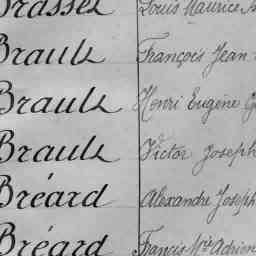 Brasset Louis Maurice
Brault François Jean
Brault Henri Eugène
Brault Victor Joseph
Bréard Alexandre Joseph
Bréard Francis Mie Adrien